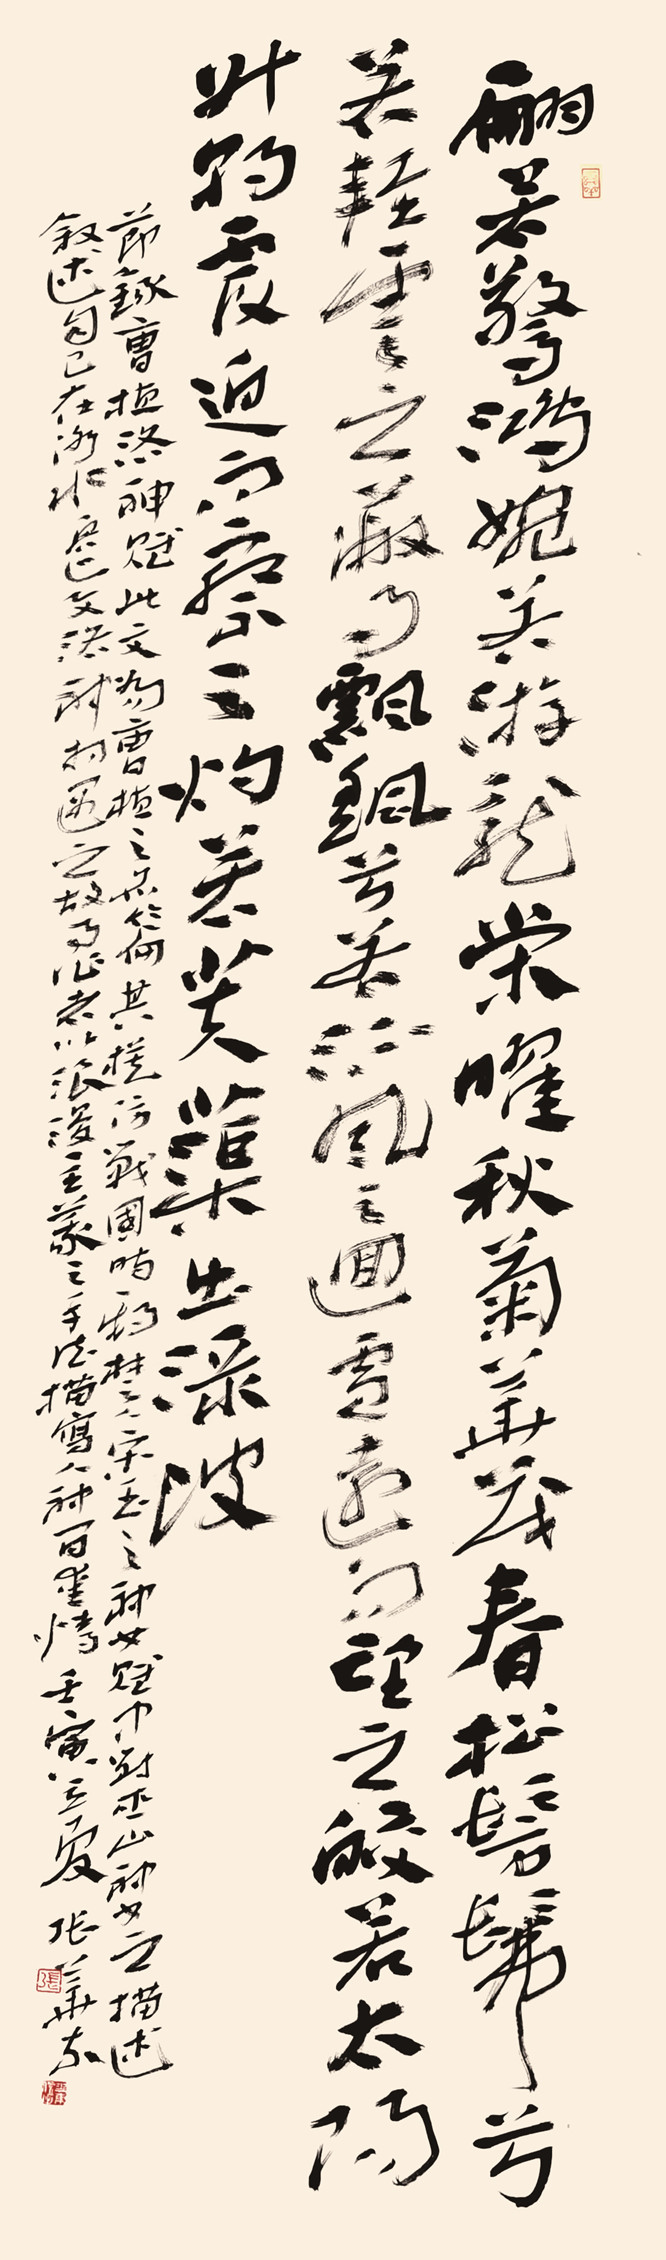 翩若驚鴻婉若游龍榮曜秋菊華茂春松髣髴兮
若輕雲之蔽月飄颻兮若流風之迴雪遠而望之皎若太陽
升朝霞迫而察之灼若芙蕖出渌波
節錄曹植洛神賦此文為曹植之其模仿戰國時期楚人宋玉之神女賦中對巫山神女之描述
敘述自己在洛水邊與洛神相遇之故事作者以浪漫主義之手法描寫人神間愛情壬寅立夏張華
張